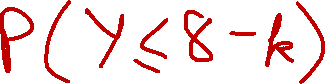 P(Y≤8-k)